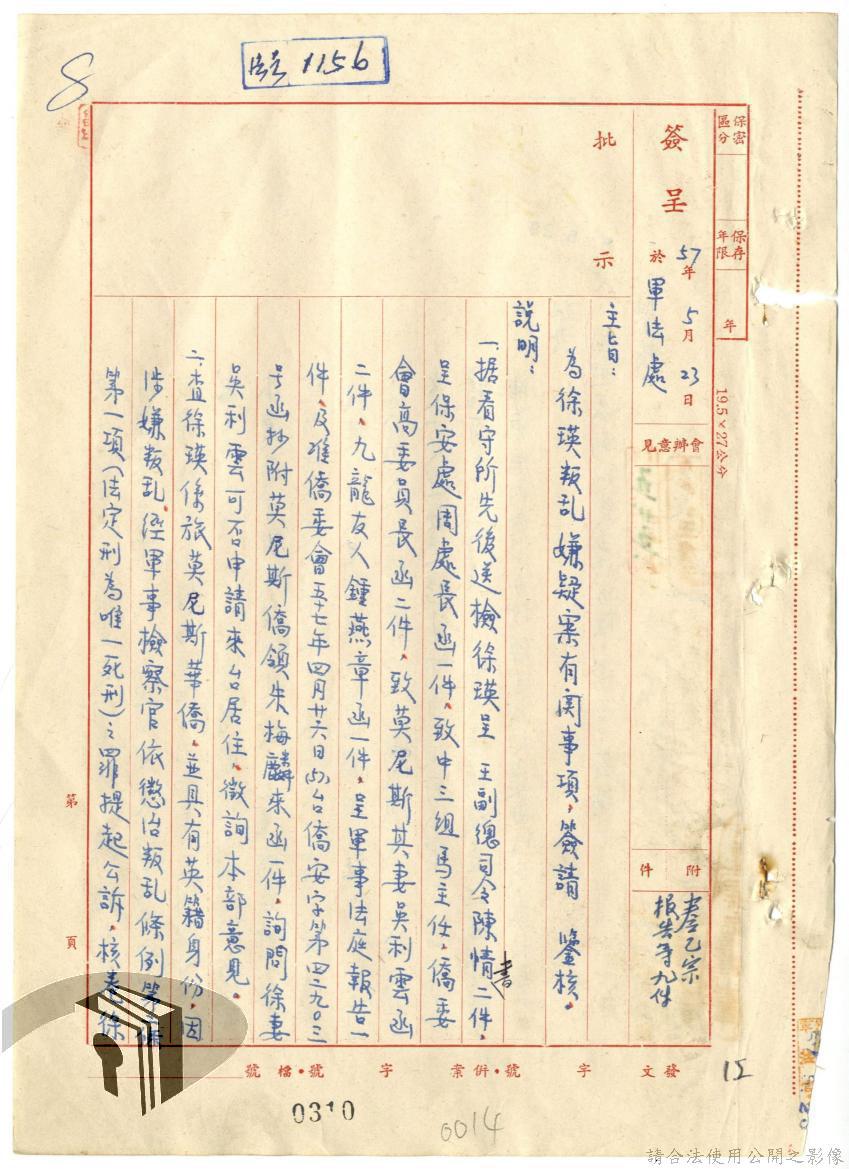 保密區分
保存年限
年
19.5×27公分
簽呈
於
57年5月23日
軍法處
會辦意見
附件
卷乙宗
報告等九件
批示
主旨:
為徐瑛叛乱嫌疑案有関事項,簽請 鑒核。
説明:
一、据看守所先後送檢徐瑛呈 王副總司令陳情書二件,
呈保安處周處長函一件,致中三組馬主任,僑委
會高委員長函二件,致莫尼斯其妻吳利雲函
二件,九龍友人鍾燕章函一件,呈軍事法庭報告一
件,及准僑委會五十七年四月廿六日(57)台僑安字第四二九〇三
号函抄附莫尼斯僑領朱梅麟來函一件,詢問徐妻
吳利雲可否申請來台居住,徵詢本部意見。
二、查徐瑛係旅莫尼斯華僑,並具有英籍身份,因
涉嫌叛乱,經軍事檢察官依懲治叛乱條例第二條
第一項(法定刑為唯一死刑)之罪提起公訴,核卷徐
第 頁
發文 字 號·併案 字 號·檔 號
1156
8
15
0310
0014
請合法使用公開之影像